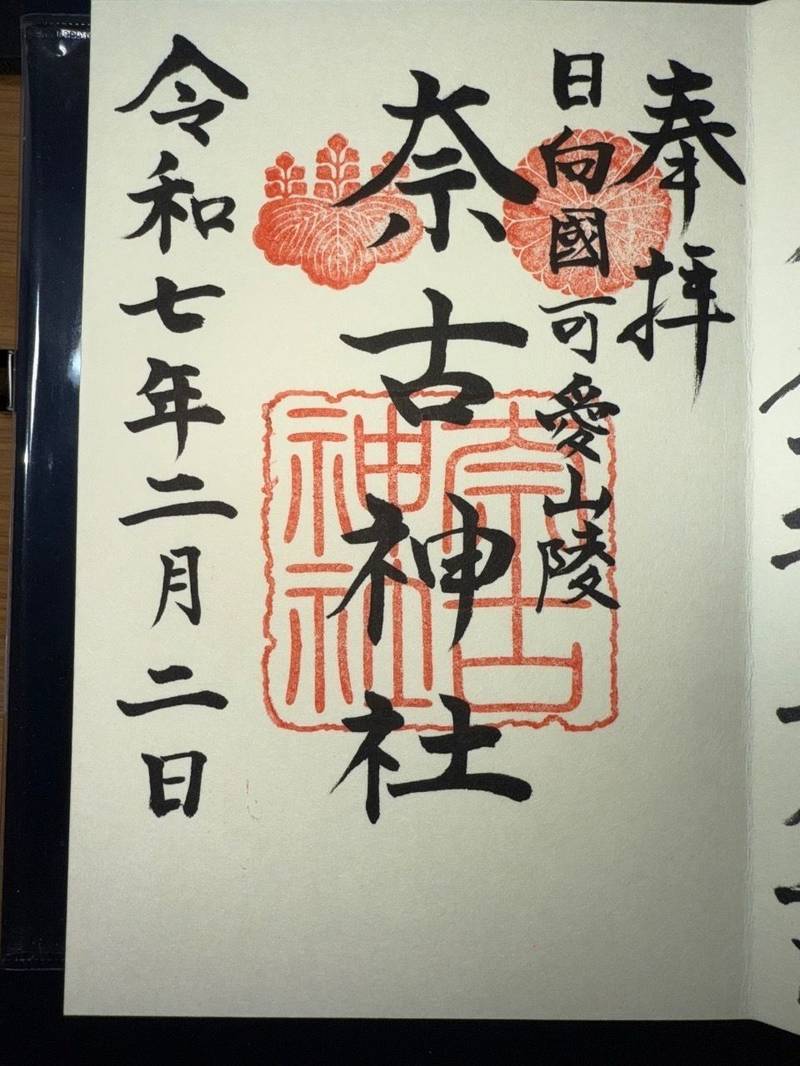 奉拝
日向國可愛山陵
奈古神社
奈古神社
令和七年二月二日